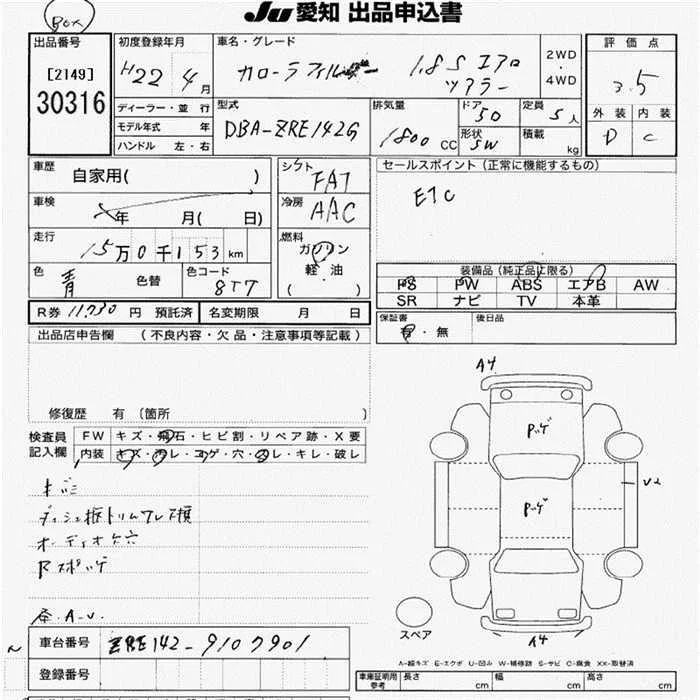 BOX
JU 愛知 出品申込書
出品番号
[2149]
30316
初度登録年月
H22 4月
ディーラー・並 行
モデル年式 年
ハンドル 左・右
車名・グレード
カローラフィルダー 1.8S エアロ
ツアラー
2WD
・
4WD
型式
DBA-ZRE142G
排気量
1800 CC
ドア
5D
形状
SW
定員
5人
積載
kg
評 価 点
3.5
外 装 内 装
D C
車歴
自家用( )
車検
年 月( 日)
走行
15万0千153km
色
青
色替
色コード
8T7
シフト
FAT
冷房
AAC
燃料
ガソリン
軽 油
( )
セールスポイント(正常に機能するもの)
ETC
装備品(純正品に限る)
PS PW ABS エアB AW
SR ナビ TV 本革
R券 11,730 円 預託済 名変期限 月 日
保証書
有・無
後日品
出品店申告欄 (不良内容・欠品・注意事項等記載)
修復歴 有 (箇所 )
検査員
記入欄
FW キズ・飛石・ヒビ割・リペア跡・X要
内装 キズ・汚レ・コゲ・穴・スレ・キレ・破レ
キバミ
オーディオ欠穴
A4
Pッゲ
Pッゲ
U2
A4
スペア
各.A.U.
車台番号 ZRE142-9107901
登録番号
A-線キズ E-エクボ U-凹み W-補修跡 S-サビ C-腐食 XX-取替済
車庫証明用
参考
長さ cm 幅 cm 高さ cm